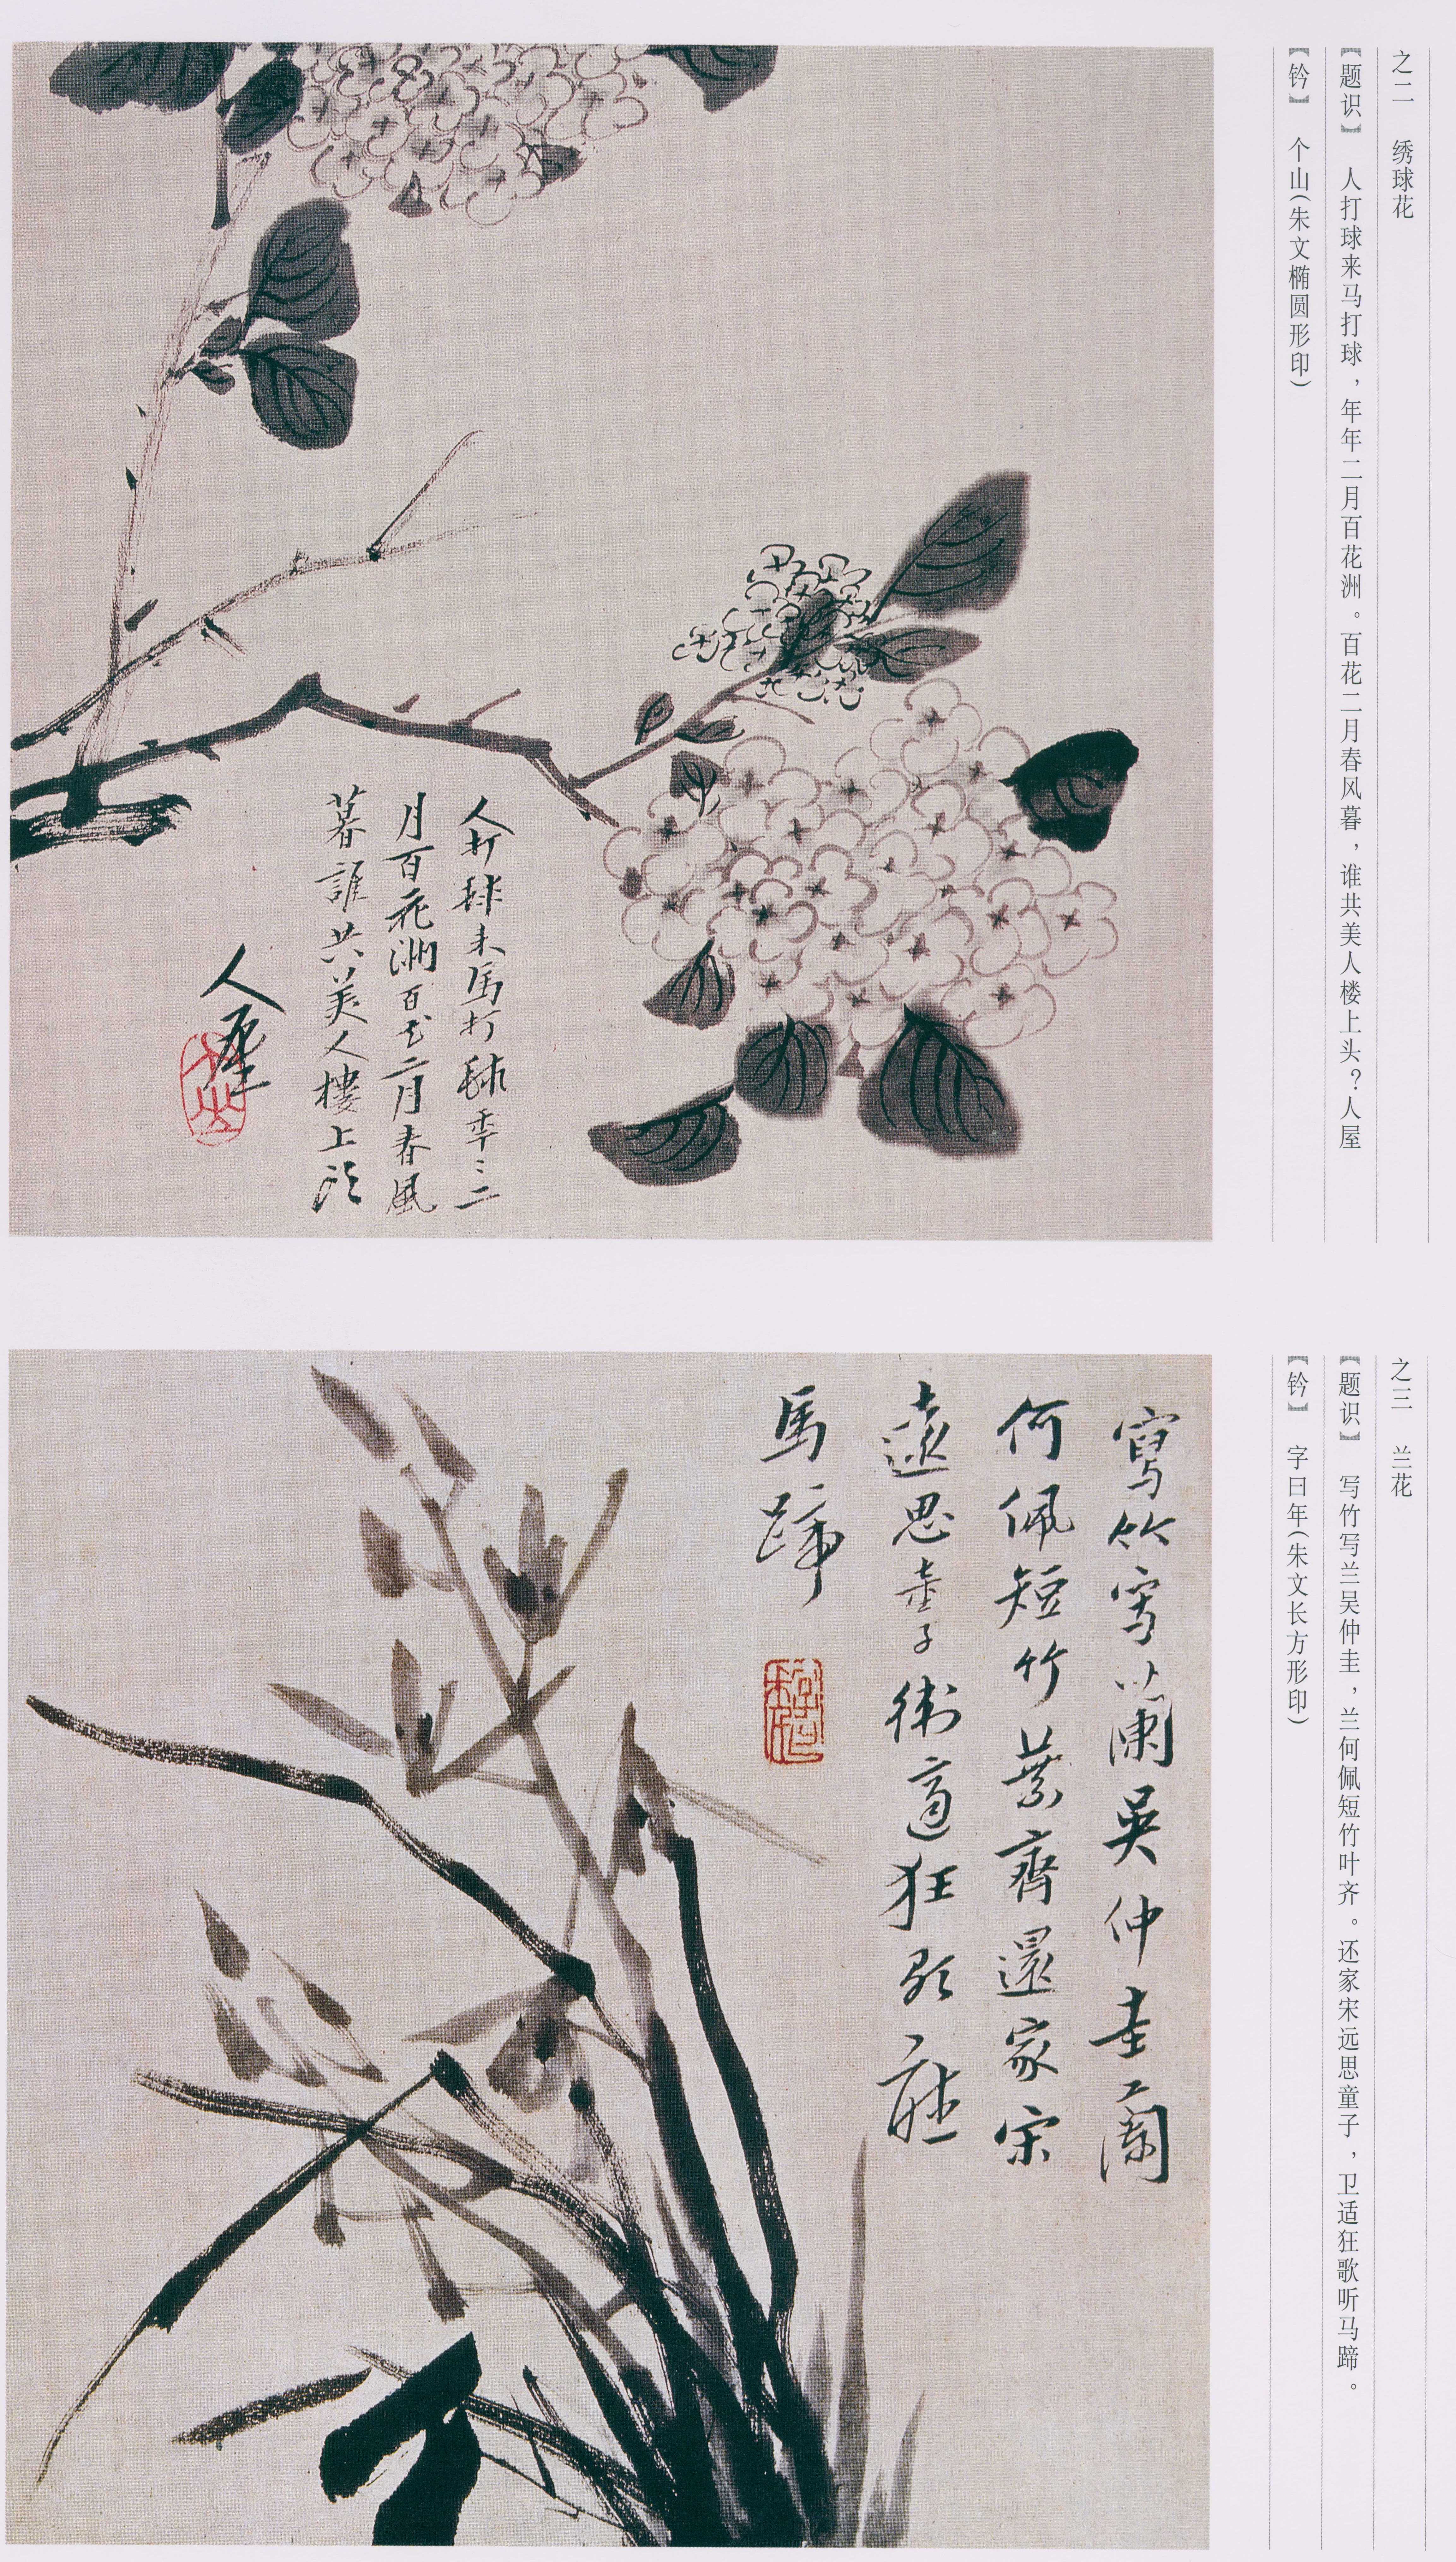 之二　绣球花
【题识】　人打球来马打球，年年二月百花洲。百花二月春风暮，谁共美人楼上头？人屋
【钤】　个山（朱文椭圆形印）
人打毬来馬打毬年〻二
月百花洲百花二月春風
暮誰共美人樓上头
人屋
个山
之三　兰花
【题识】　写竹写兰吴仲圭，兰何佩短竹叶齐。还家宋远思童子，卫适狂歌听马蹄。
【钤】　字曰年（朱文长方形印）
寫竹寫蘭吳仲圭蘭
何佩短竹葉齊還家宋
遠思童子衛適狂歌聴
馬蹄
字曰年